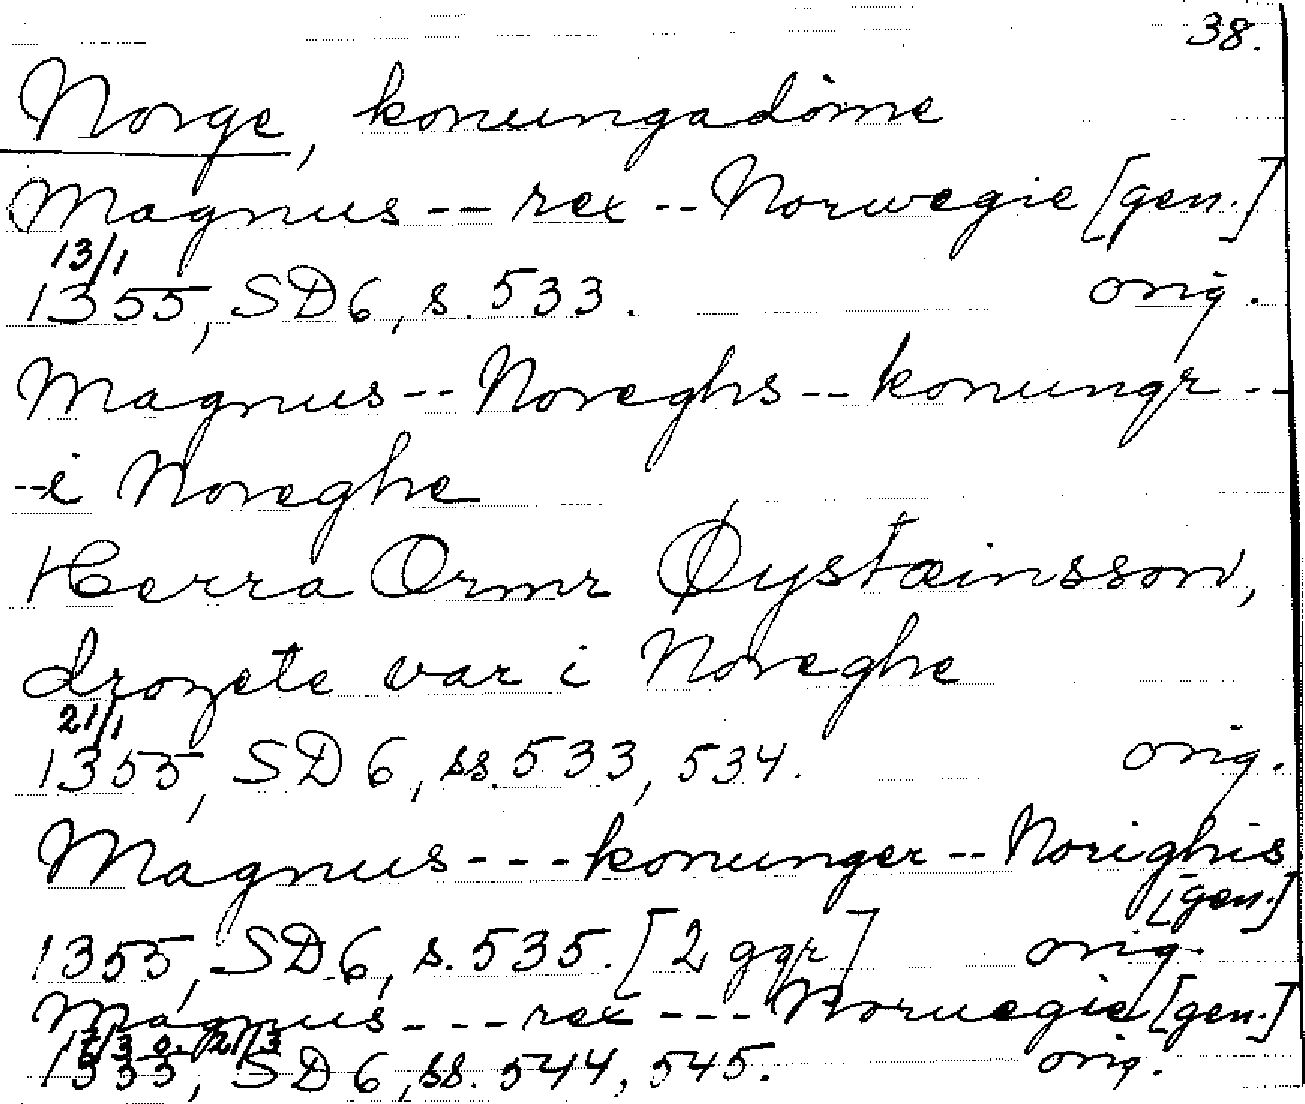 38.
Norge, konungadöme
Magnus -- rex -- Norwegie [gen.]
13/1
1355, SD 6, s. 533. orig.
Magnus -- Noreghs -- konungr --
-- i Noreghe
Herra Ormr Øysteinsson,
drozete var i Noreghe
21/1
1355, SD 6, ss. 533, 534. orig.
Magnus --- konunger -- Norighis
[gen.]
1355, SD 6, s. 535. [2 ggr] orig.
Magnus --- rex --- Noruegie [gen.]
o. 21/3
1355, SD 6, ss. 544, 545. orig.